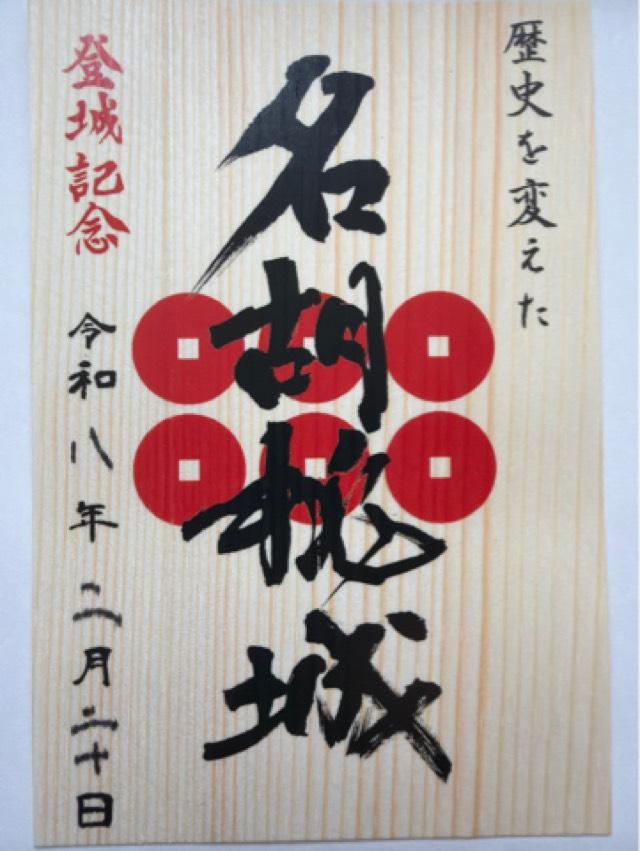 歴史を変えた
名胡桃城
登城記念
令和八年二月二十日